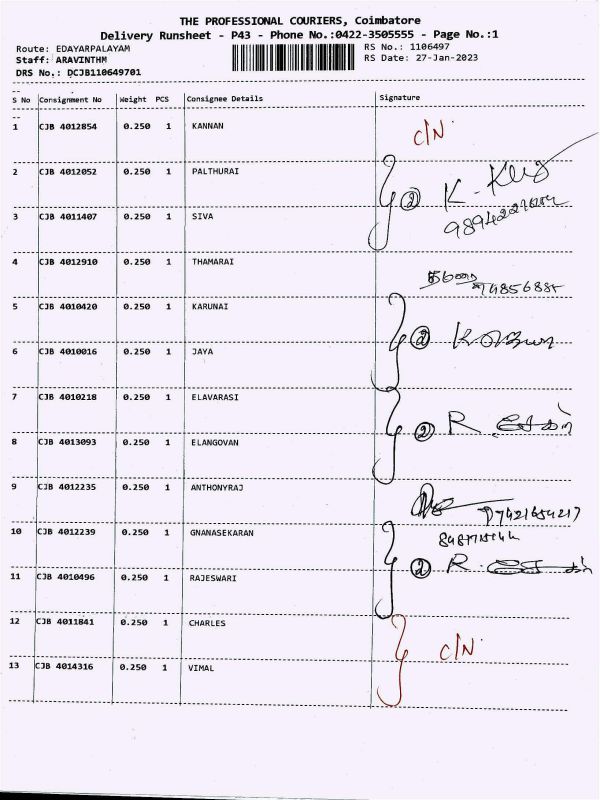 THE PROFESSIONAL COURIERS, Coimbatore
Delivery Runsheet - P43 - Phone No.:0422-3505555 - Page No.:1
Route: EDAYARPALAYAM
RS No.: 1106497
Staff: ARAVINTHM
RS Date: 27-Jan-2023
DRS No.: DCJB110649701
S No Consignment No Weight PCS Consignee Details Signature
1 CJB 4012854 0.250 1 KANNAN C/N
2 CJB 4012052 0.250 1 PALTHURAI
② K.
3 CJB 4011407 0.250 1 SIVA
4 CJB 4012910 0.250 1 THAMARAI
5 CJB 4010420 0.250 1 KARUNAI
②
6 CJB 4010016 0.250 1 JAYA
7 CJB 4010218 0.250 1 ELAVARASI
② R.
8 CJB 4013093 0.250 1 ELANGOVAN
9 CJB 4012235 0.250 1 ANTHONYRAJ
7421654217
10 CJB 4012239 0.250 1 GNANASEKARAN
② R.
11 CJB 4010496 0.250 1 RAJESWARI
12 CJB 4011841 0.250 1 CHARLES
C/N
13 CJB 4014316 0.250 1 VIMAL